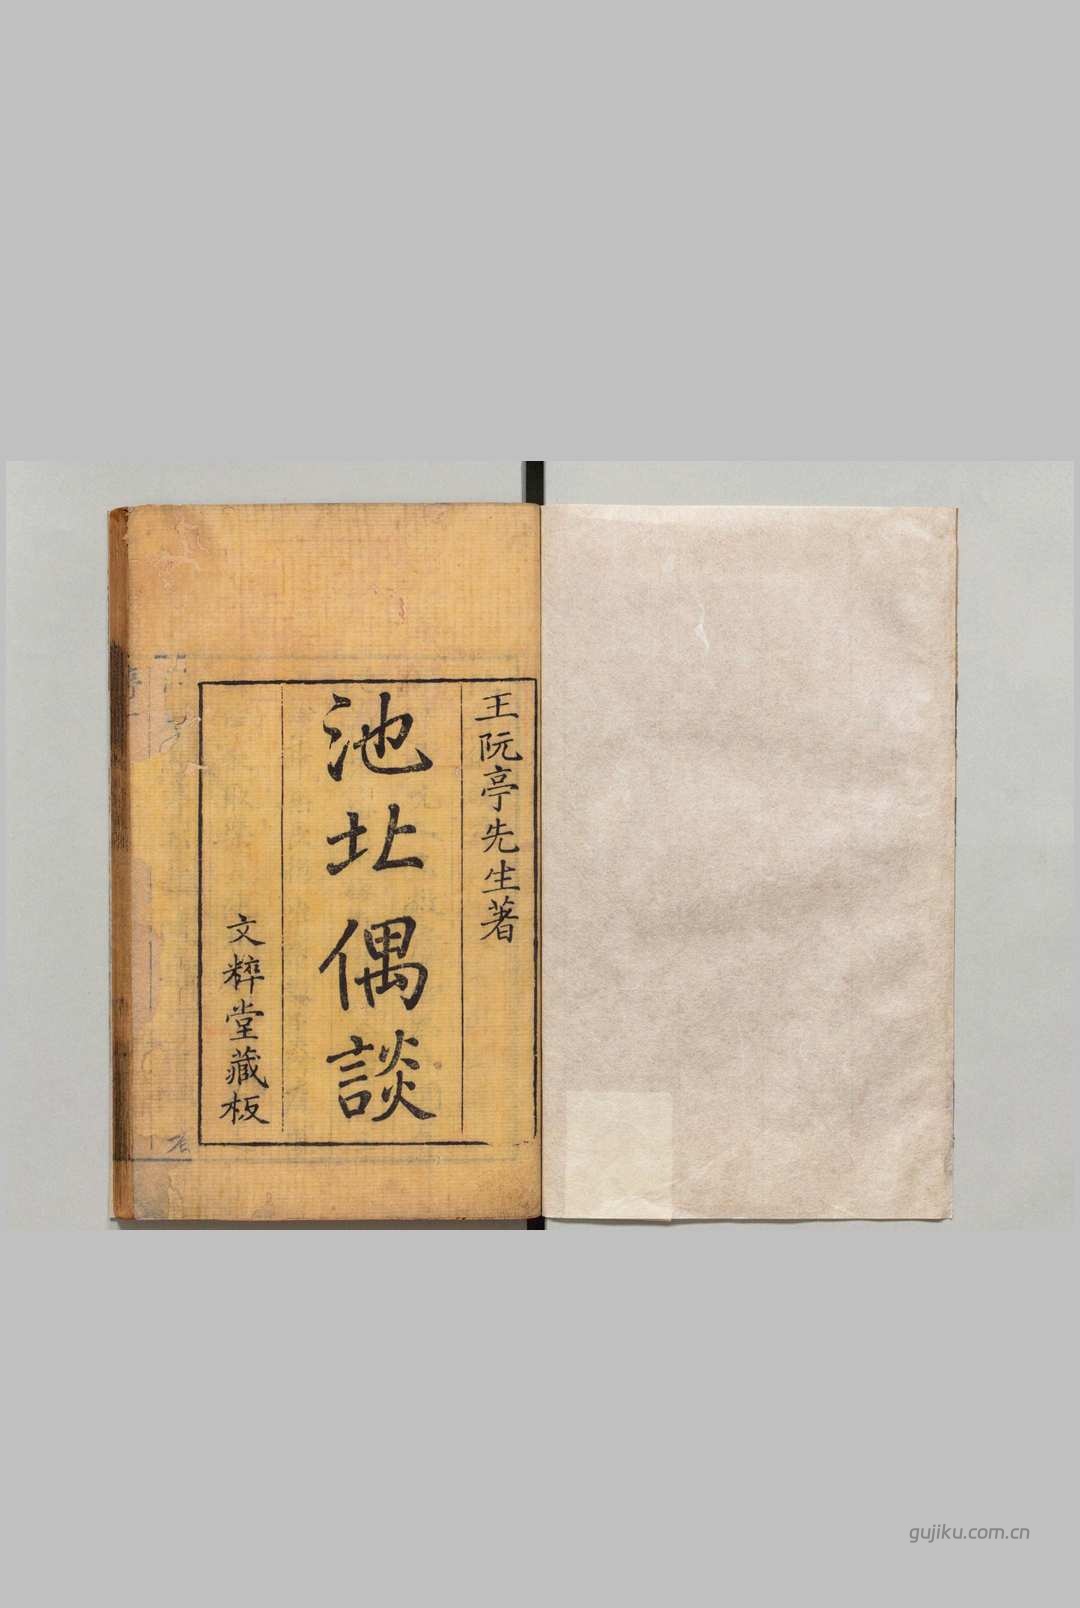 王阮亭先生著
池北偶談
文粹堂藏板
gujiku.com.cn